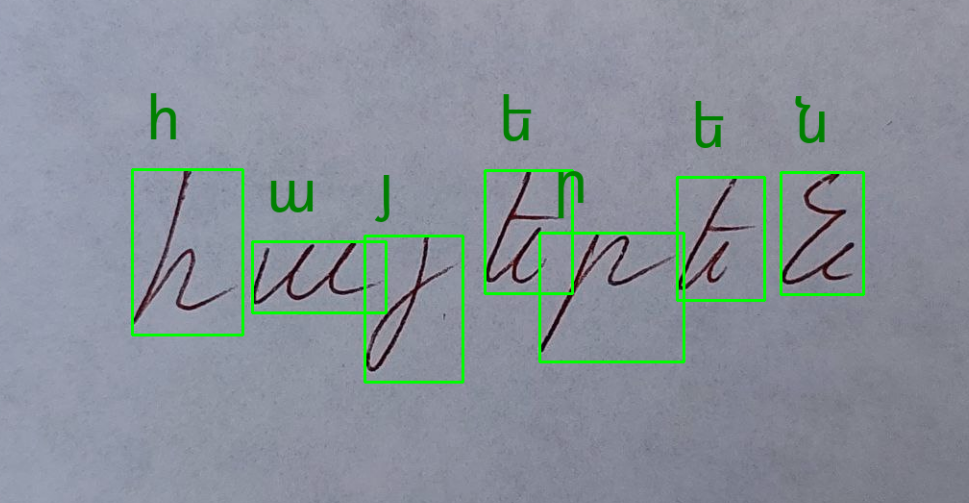 հ ա յ ե ր ե ն
հայերեն